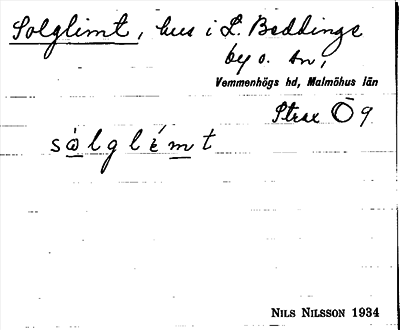 Solglimt, hus i L. Beddinge
by o. sn,
Vemmenhögs hd, Malmöhus län
Strax Ö 9
sòlglémt
NILS NILSSON 1934